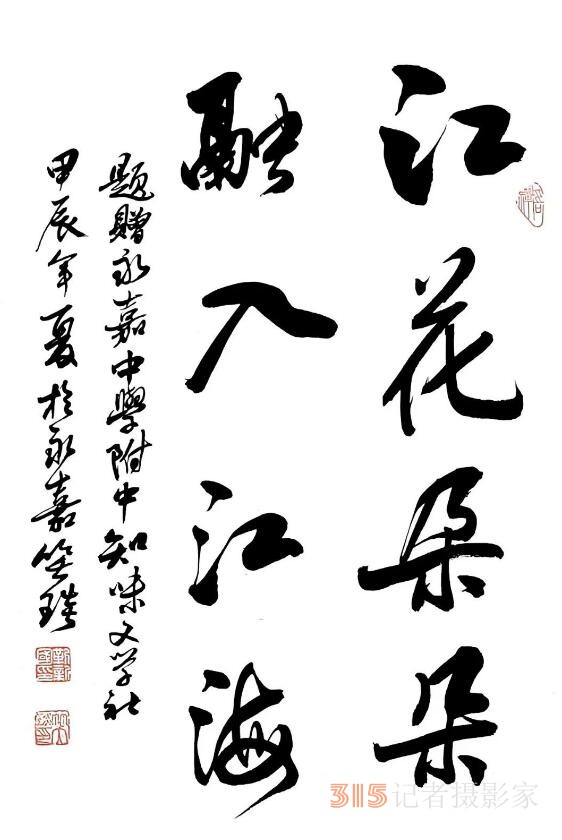 江花朵朵
融入江海
题贈永嘉中學附中知味文学社
甲辰年夏於永嘉
315记者摄影家